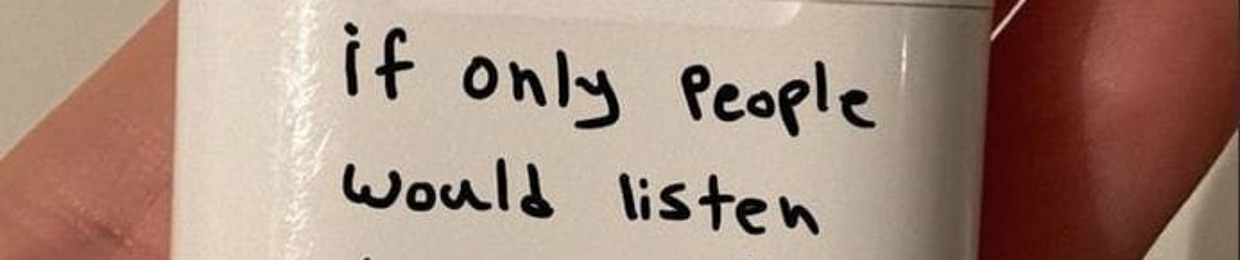 if only People
would listen